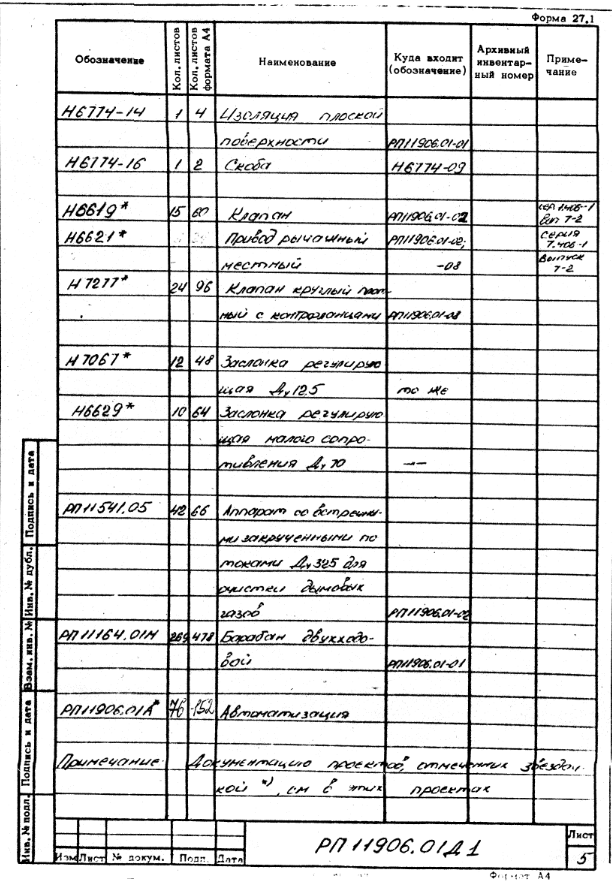 Форма 27.1
Обозначение Кол. листов Кол. листов формата А4 Наименование Куда входит (обозначение) Архивный инвентарный номер Примечание
Н6774-14 1 4 Изоляция плоской
поверхности РП11906.01-01
Н6774-16 1 2 Скоба Н6774-09
Н6619* 15 60 Клапан РП11906.01-02 вып 7-2
Н6621* Привод рычажный РП11906.01-02; серия 7.406-1
местный -08 Выпуск 7-2
Н7277* 24 96 Клапан круглый плот-
ный с контрфланцами РП11906.01-08
Н7067* 12 48 Заслонка регулирую
щая Ду125 то же
Н6629* 10 64 Заслонка регулирую
щая малого сопро-
тивления Ду 70 —"—
РП11541.05 42 66 Аппарат со встречны-
ми закрученными по
токами Ду 325 для
очистки дымовых
газов РП11906.01-02
РП11164.01М 269 478 Барабан двухходо-
вой РП11906.01-01
РП11906.01А* 76 152 Автоматизация
Примечание Документацию проектов, отмеченных звездоч
кой *), см в этих проектах
Инв. № подл. Подпись и дата Взам. инв. № Инв. № дубл. Подпись и дата
РП 11906.01Д1
Лист
5
Изм Лист № докум. Подп. Дата
Формат А4